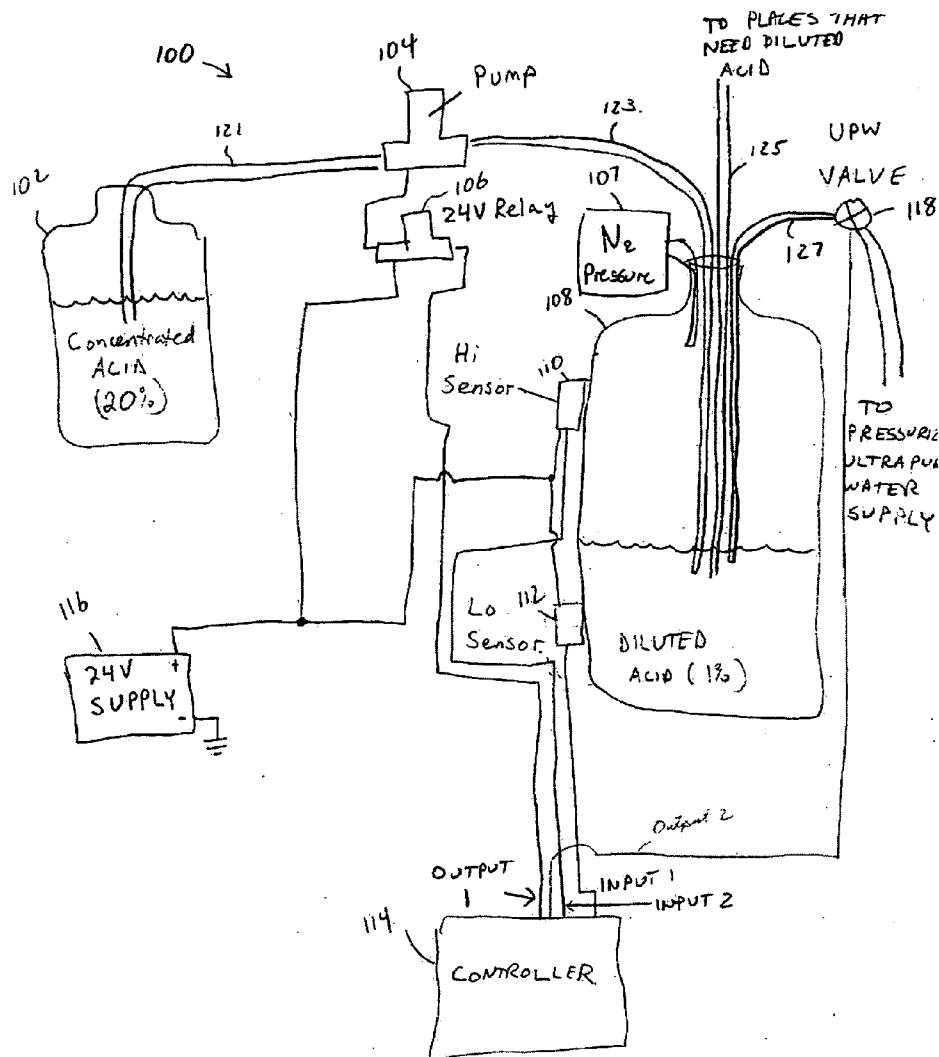 TO PLACES THAT
NEED DILUTED
ACID
100
104
Pump
121
123.
125
UPW
VALVE
118
102
106
24V Relay
107
N2
Pressure
127
108
Concentrated
ACID
(20%)
Hi
Sensor
110
TO
PRESSURIZ
ULTRAPU
WATER
SUPPLY
116
24V
+
SUPPLY
-
Lo
Sensor
112
DILUTED
ACID (1%)
Output 2
OUTPUT
1
INPUT 1
INPUT 2
114
CONTROLLER